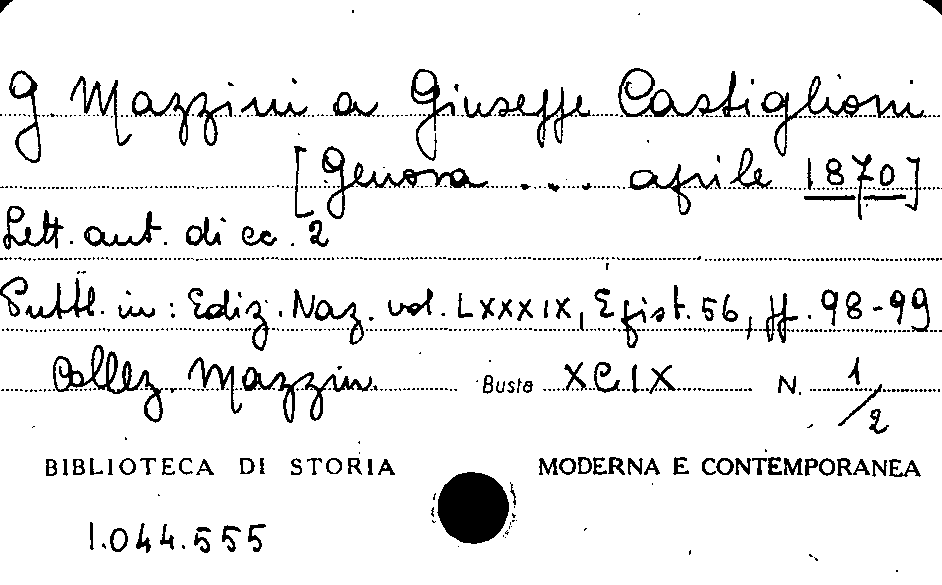 G. Mazzini a Giuseppe Castiglioni
[Genova ... aprile 1870]
Lett. aut. di cc. 2
Pubbl. in: Ediz. Naz. vol. LXXXIX, Epist. 56, pp. 98-99
Collez. Mazzin. Busta XCIX N. 1/2
BIBLIOTECA DI STORIA MODERNA E CONTEMPORANEA
1.044.555